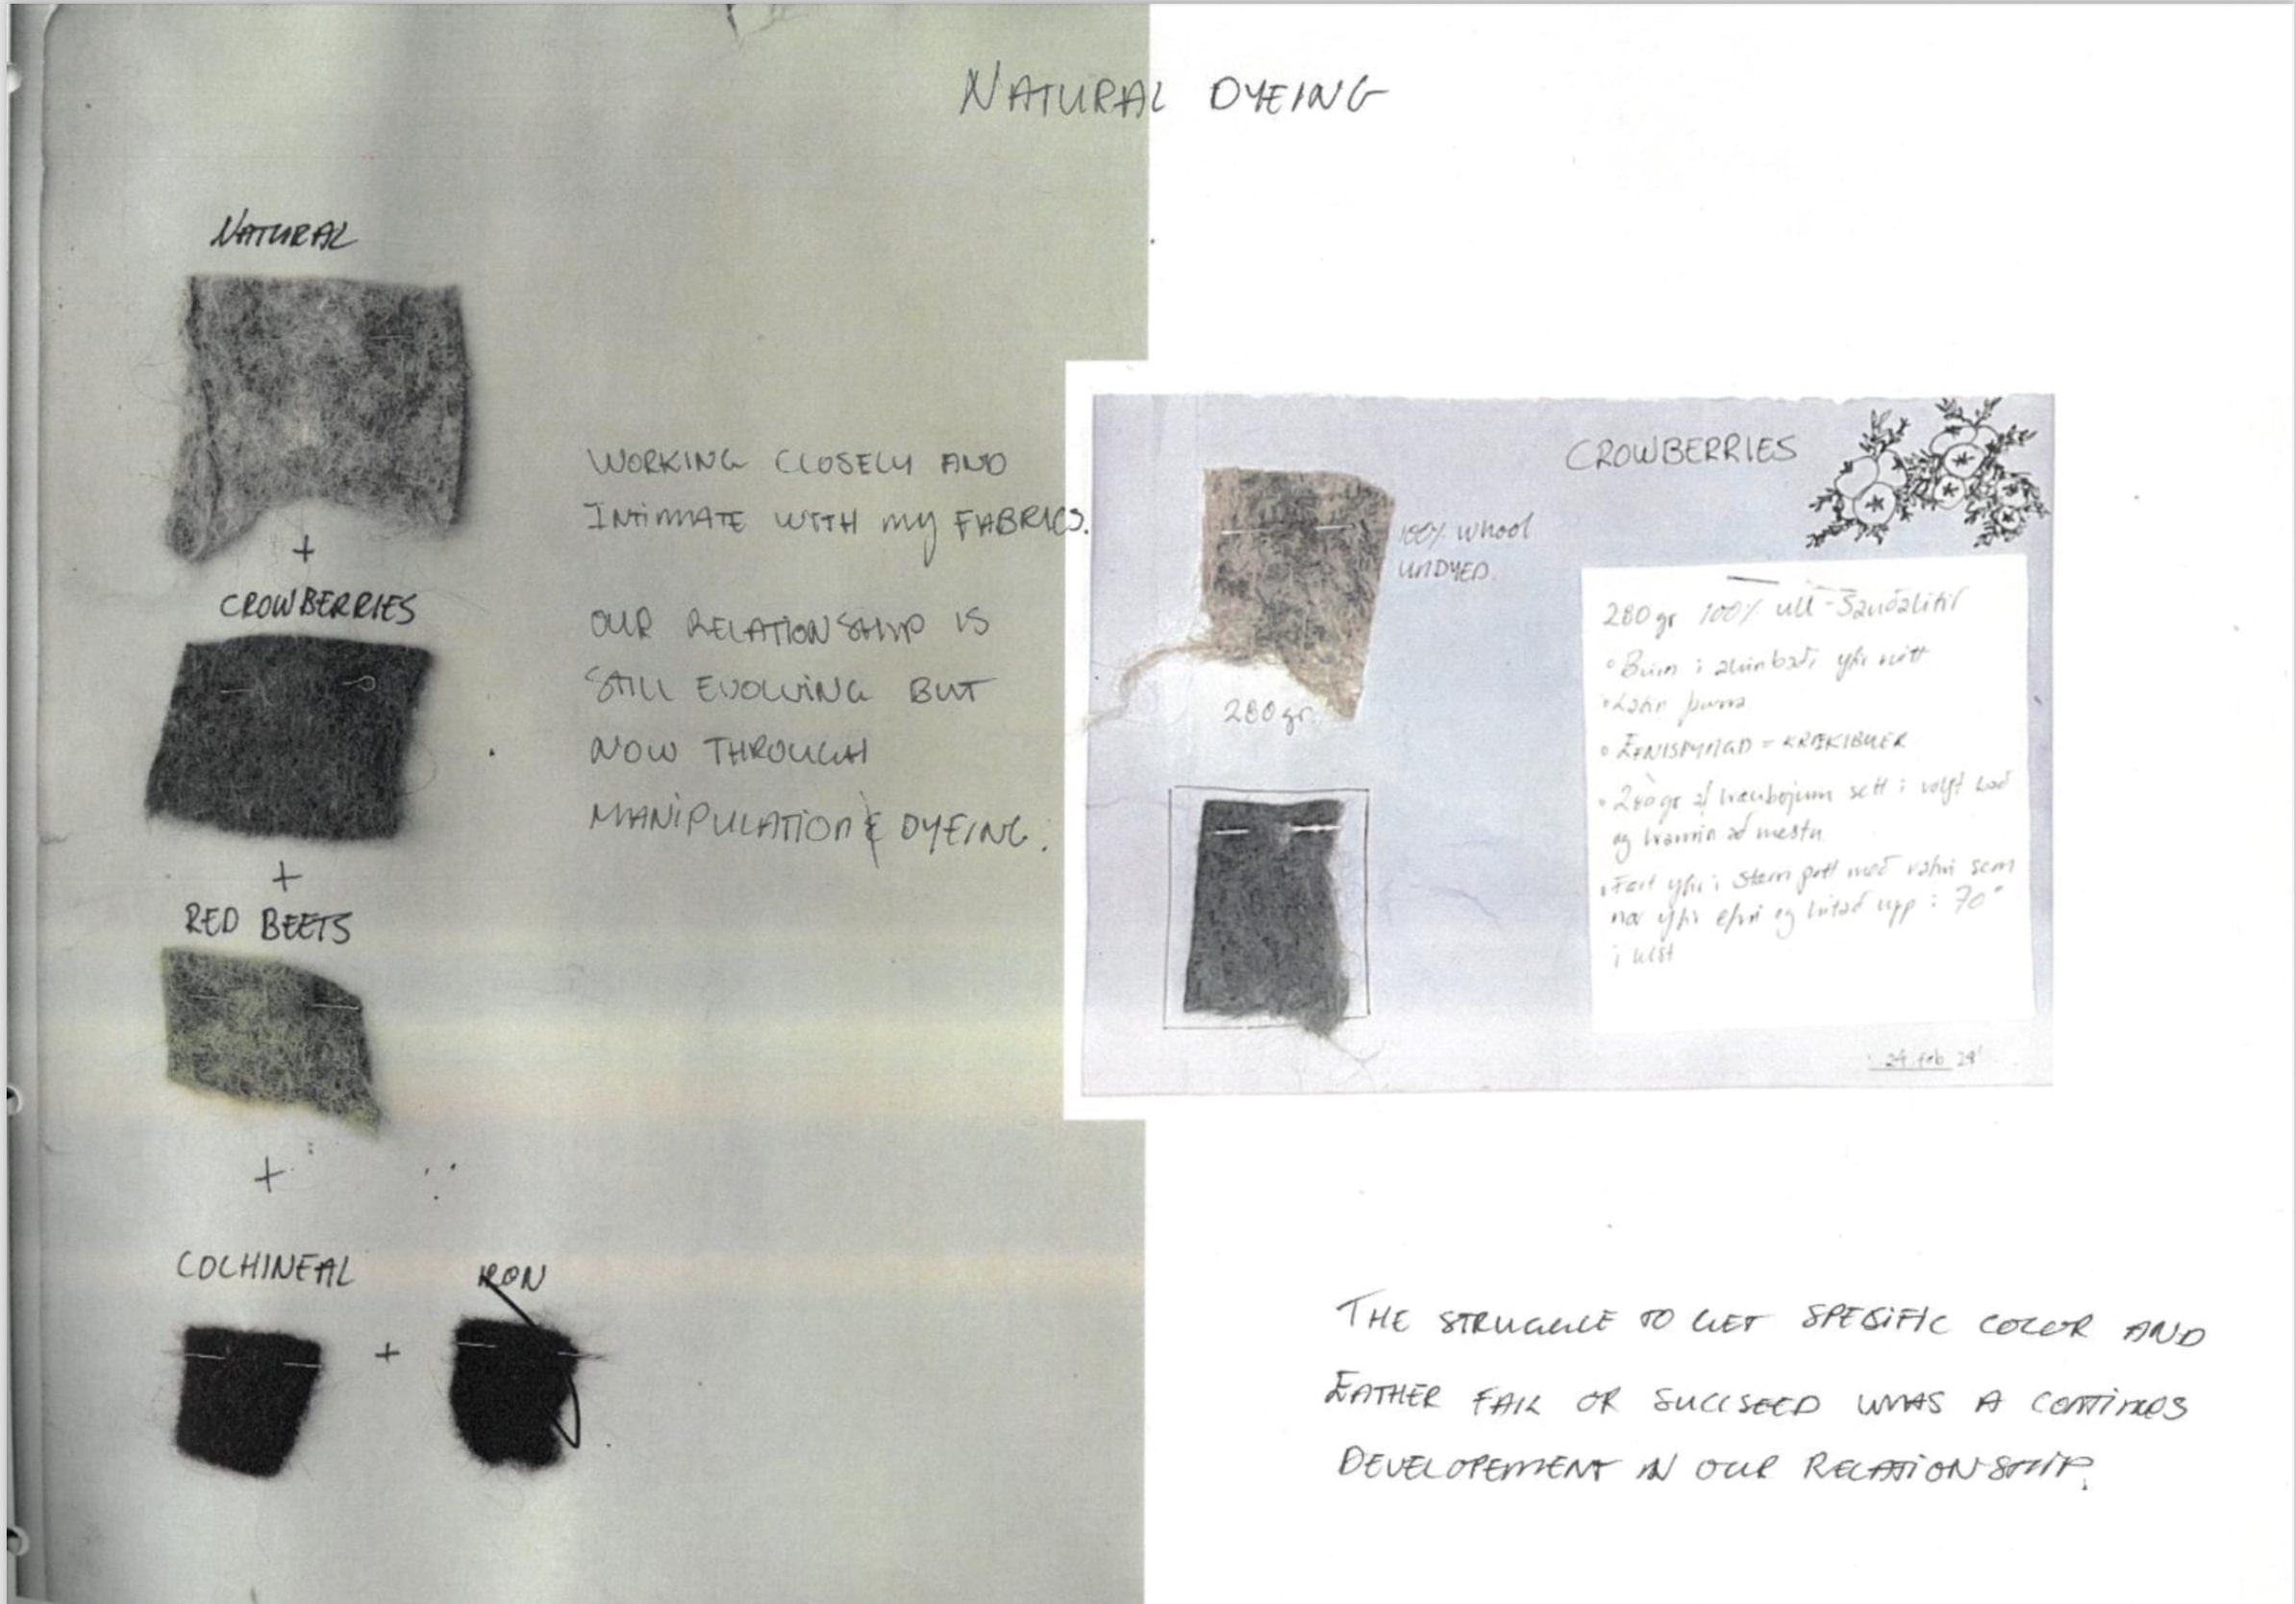 NATURAL DYEING
NATURAL
+
CROWBERRIES
+
RED BEETS
+
COCHINEAL
+
IRON
WORKING CLOSELY AND
INTIMATE WITH my FABRICS.
OUR RELATIONSHIP IS
STILL EVOLVING BUT
NOW THROUGH
MANIPULATION & DYEING.
CROWBERRIES
100% whool
UNDYED.
280 gr.
280 gr 100% ull - Sauðalitir
yfir nótt
Látin þurra
= KRÆKIBER
sett í volgt bað
og kramin að mestu
Fært yfir í stærri pott með vatni sem
nær yfir efni og hitað upp í 70°
24 feb 24'
THE STRUGGLE TO GET SPESIFIC COLOR AND
EATHER FAIL OR SUCCSEED WHAS A CONTINUOS
DEVELOPEMENT IN OUR RELATIONSHIP.